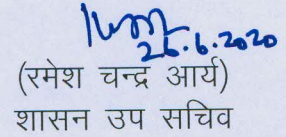 26.6.2020
(रमेश चन्द्र आर्य)
शासन उप सचिव